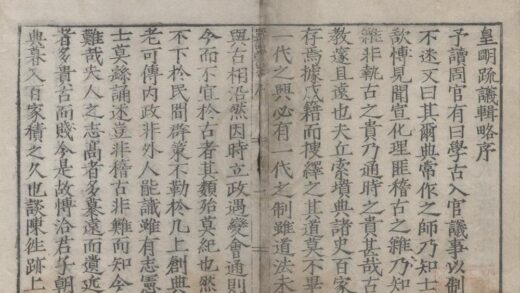 皇明疏議輯略序
予讀周官有曰學古入官議事以制
不迷又曰其爾典常作之師乃知士
欲博見聞宣化理匪稽古之難乃知
難非執古之貴乃通時之貴甚哉古
教遠且遠也夫丘索墳典諸史百家
存焉據戊籍而搜繹之其道莫不畢
一代之興必有一代之制雖道法未
與古相沿然因時立政遇變會通則
今而不宜於古者其類殆莫紀也然
不下於民間群策不勒於几上創典
老可傳内政非外人能識雖有志憲
士莫繇誦述豈非稽古非難而知今
難哉夫人之志高者多慕遠而遺近
者多貴古而賤今是故博洽君子朝
典暮入百家積之久也談陳徃跡上